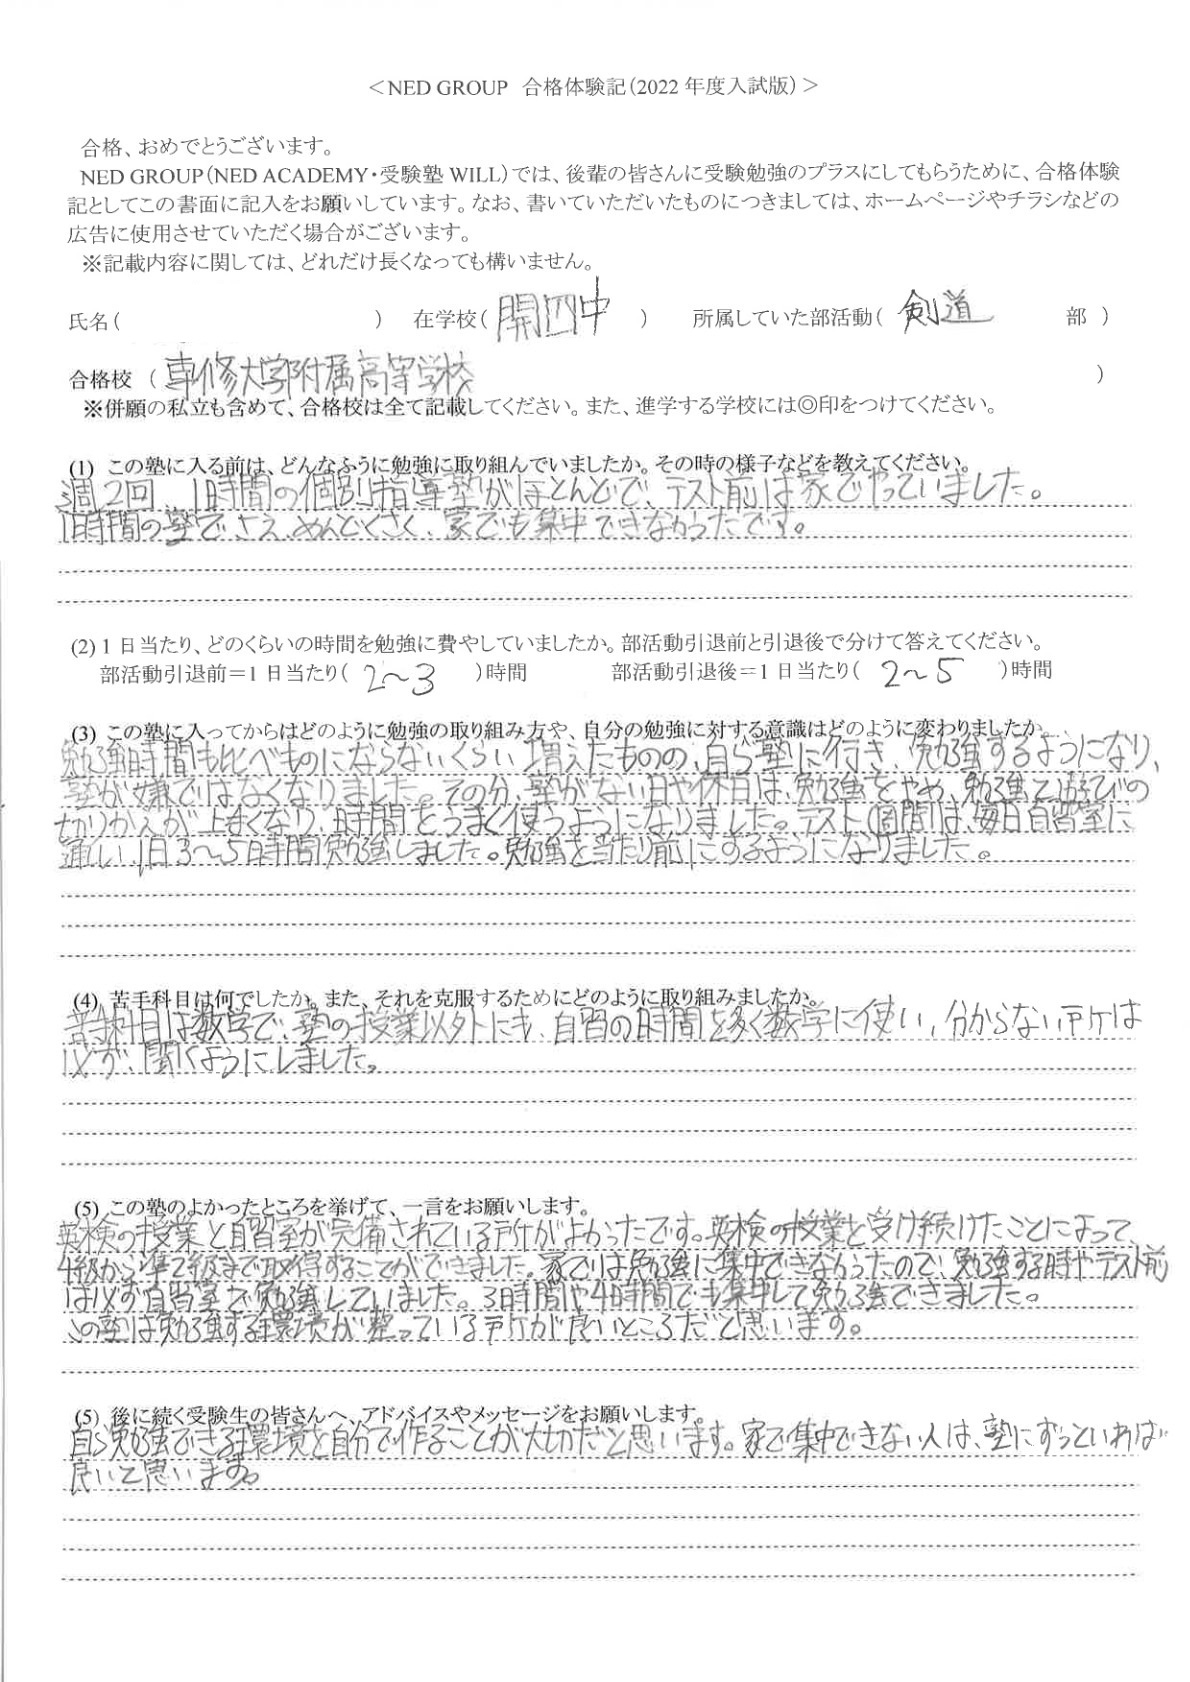 ＜NED GROUP 合格体験記(2022 年度入試版)＞
合格、おめでとうございます。
NED GROUP(NED ACADEMY・受験塾 WILL)では、後輩の皆さんに受験勉強のプラスにしてもらうために、合格体験
記としてこの書面に記入をお願いしています。なお、書いていただいたものにつきましては、ホームページやチラシなどの
広告に使用させていただく場合がございます。
※記載内容に関しては、どれだけ長くなっても構いません。
氏名( ) 在学校( 開四中 ) 所属していた部活動( 剣道 部 )
合格校 ( 専修大学附属高等学校 )
※併願の私立も含めて、合格校は全て記載してください。また、進学する学校には◎印をつけてください。
(1) この塾に入る前は、どんなふうに勉強に取り組んでいましたか。その時の様子などを教えてください。
週2回、1時間の個別指導塾がほとんどで、テスト前は家でやっていました。
1時間の塾でさえ、めんどくさく、家でも集中できなかったです。
(2) 1 日当たり、どのくらいの時間を勉強に費やしていましたか。部活動引退前と引退後で分けて答えてください。
部活動引退前＝1 日当たり( 2～3 )時間 部活動引退後＝1 日当たり( 2～5 )時間
(3) この塾に入ってからはどのように勉強の取り組み方や、自分の勉強に対する意識はどのように変わりましたか。
勉強時間も比べものにならないくらい増えたものの、自ら塾に行き、勉強するようになり、
塾が嫌ではなくなりました。その分、塾がない日や休日は、勉強をやめ、勉強と遊びの
切りかえが上まくなり、時間をうまく使うようになりました。テスト1週間は、毎日自習室に
通い、1日3～5時間勉強しました。勉強を当たり前にするようになりました。
(4) 苦手科目は何でしたか。また、それを克服するためにどのように取り組みましたか。
苦手科目は数学で、塾の授業以外にも、自習の時間を多く数学に使い、分からない所は
必ず、聞くようにしました。
(5) この塾のよかったところを挙げて、一言をお願いします。
英検の授業と自習室が完備されている所がよかったです。英検の授業を受け続けたことによって、
4級から準2級まで取得することができました。家では勉強に集中できなかったので、勉強する時やテスト前
は必ず自習室で勉強していました。3時間や4時間でも集中して勉強できました。
この塾は勉強する環境が整っている所が良いところだと思います。
(5) 後に続く受験生の皆さんへ、アドバイスやメッセージをお願いします。
自ら勉強できる環境を自分で作ることが大切だと思います。家で集中できない人は、塾にずっといれば
良いと思います。